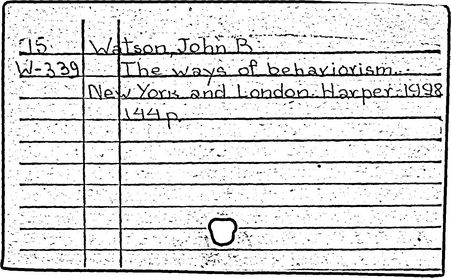 15 Watson, John B
W-339 The ways of behaviorism.
New York and London. Harper. 1998
144 p.